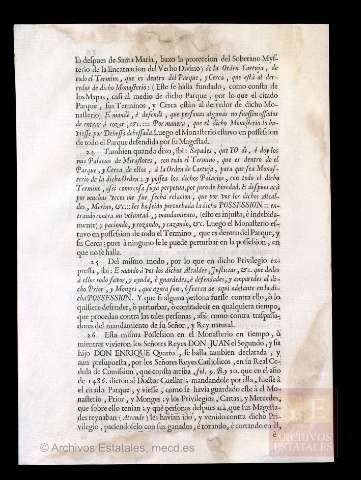 la despues de Santa Maria, baxo la proteccion del Soberano Mys-
terio de la Encarnacion del Verbo Divino; de la Orden Cartuja, de
todo el Termino, que es dentro del Parque, y Cerca, que está al der-
redor de dicho Monasterio: (Este se halla fundado, como consta de
los Mapas, casi al medio de dicho Parque; por lo que el citado
Parque, sus Terminos, y Cerca están al derredor de dicho Mo-
nasterio) E mandó, è defendió, que personas algunas no fuessen ossadas
de entrar à cazar, &c.
Luego el Monasterio estuvo en possession
de todo el Parque defendida por su Magestad.
24 Tambien quando dixo, ibi: Sepades, que YO dí, è doy los
mis Palacios de Miraflores, con todo el Termino, que es dentro de el
Parque, y Cerca de ellos, à la Orden de Cartuja, para que sea Monas-
terio de la dicha Orden: y possea los dichos Palacios, con todo el dicho
Termino, assi como cosa suya propria, por juro de heredad. E despues acá
por muchas veces me fue fecha relacion, que por Vos los dichos Alcal-
des, Merino, &c. les ha sido perturbada la dicha POSSESSION: en-
trando contra mi voluntad, y mandamiento, (esto es injusta, è indebida-
mente) y paciendo, y rozando, y cazando, &c. Luego el Monasterio estu-
vo en possession de todo el Termino, que es dentro del Parque, y
su Cerca; pues à ninguno se le puede perturbar en la possession, en
que no se halla.
25 Del mismo modo, por lo que en dicho Privilegio ex-
pressa, ibi: E mando à Vos los dichos Alcaldes, Justicias, &c. que dedes
à ellos todo favor, y ayuda, è guardedes, è defendades, y ampareder al dicho
Prior, y Monges, que agora son, è fueren de aqui adelante en la dicha
POSSESSION. Y que si alguna persona fuesse contra ello, ò lo
quisiere defender, ò perturbar, ò contradecir en qualquiera tiempo,
que procedan contra las tales personas, assi como contra traspassa-
dores del mandamiento de su Señor, y Rey natural.
26 Esta misma Possession en el Monasterio en tiempo, que
mientras vivieron los Señores Reyes DON JUAN el Segundo, y su
hijo DON ENRIQUE Quarto, se halla tambien declarada, y
aun presupuesta, por los Señores Reyes Catholicos, en su Real Ce-
dula de Comission, que consta arriba fol. 9. B. 20. que en el año
de 1486. dieron al Doctor Cuellar: mandandole por ella, fuesse à
el citado Parque, y viesse, como se havia guardado este à el Mo-
nasterio, Prior, y Monges; y los Privilegios, Cartas, y Mercedes,
que sobre ello tenian; y què personas despues acà, que sus Magesta-
des reynaban; (Atiende) les havian ido, y venido contra dicho Pri-
vilegio, paciendoselo con sus ganados, è rozando, è cortando en èl,
è
© Archivos Estatales, mecd.es
ARCHIVOS
ESTATALES